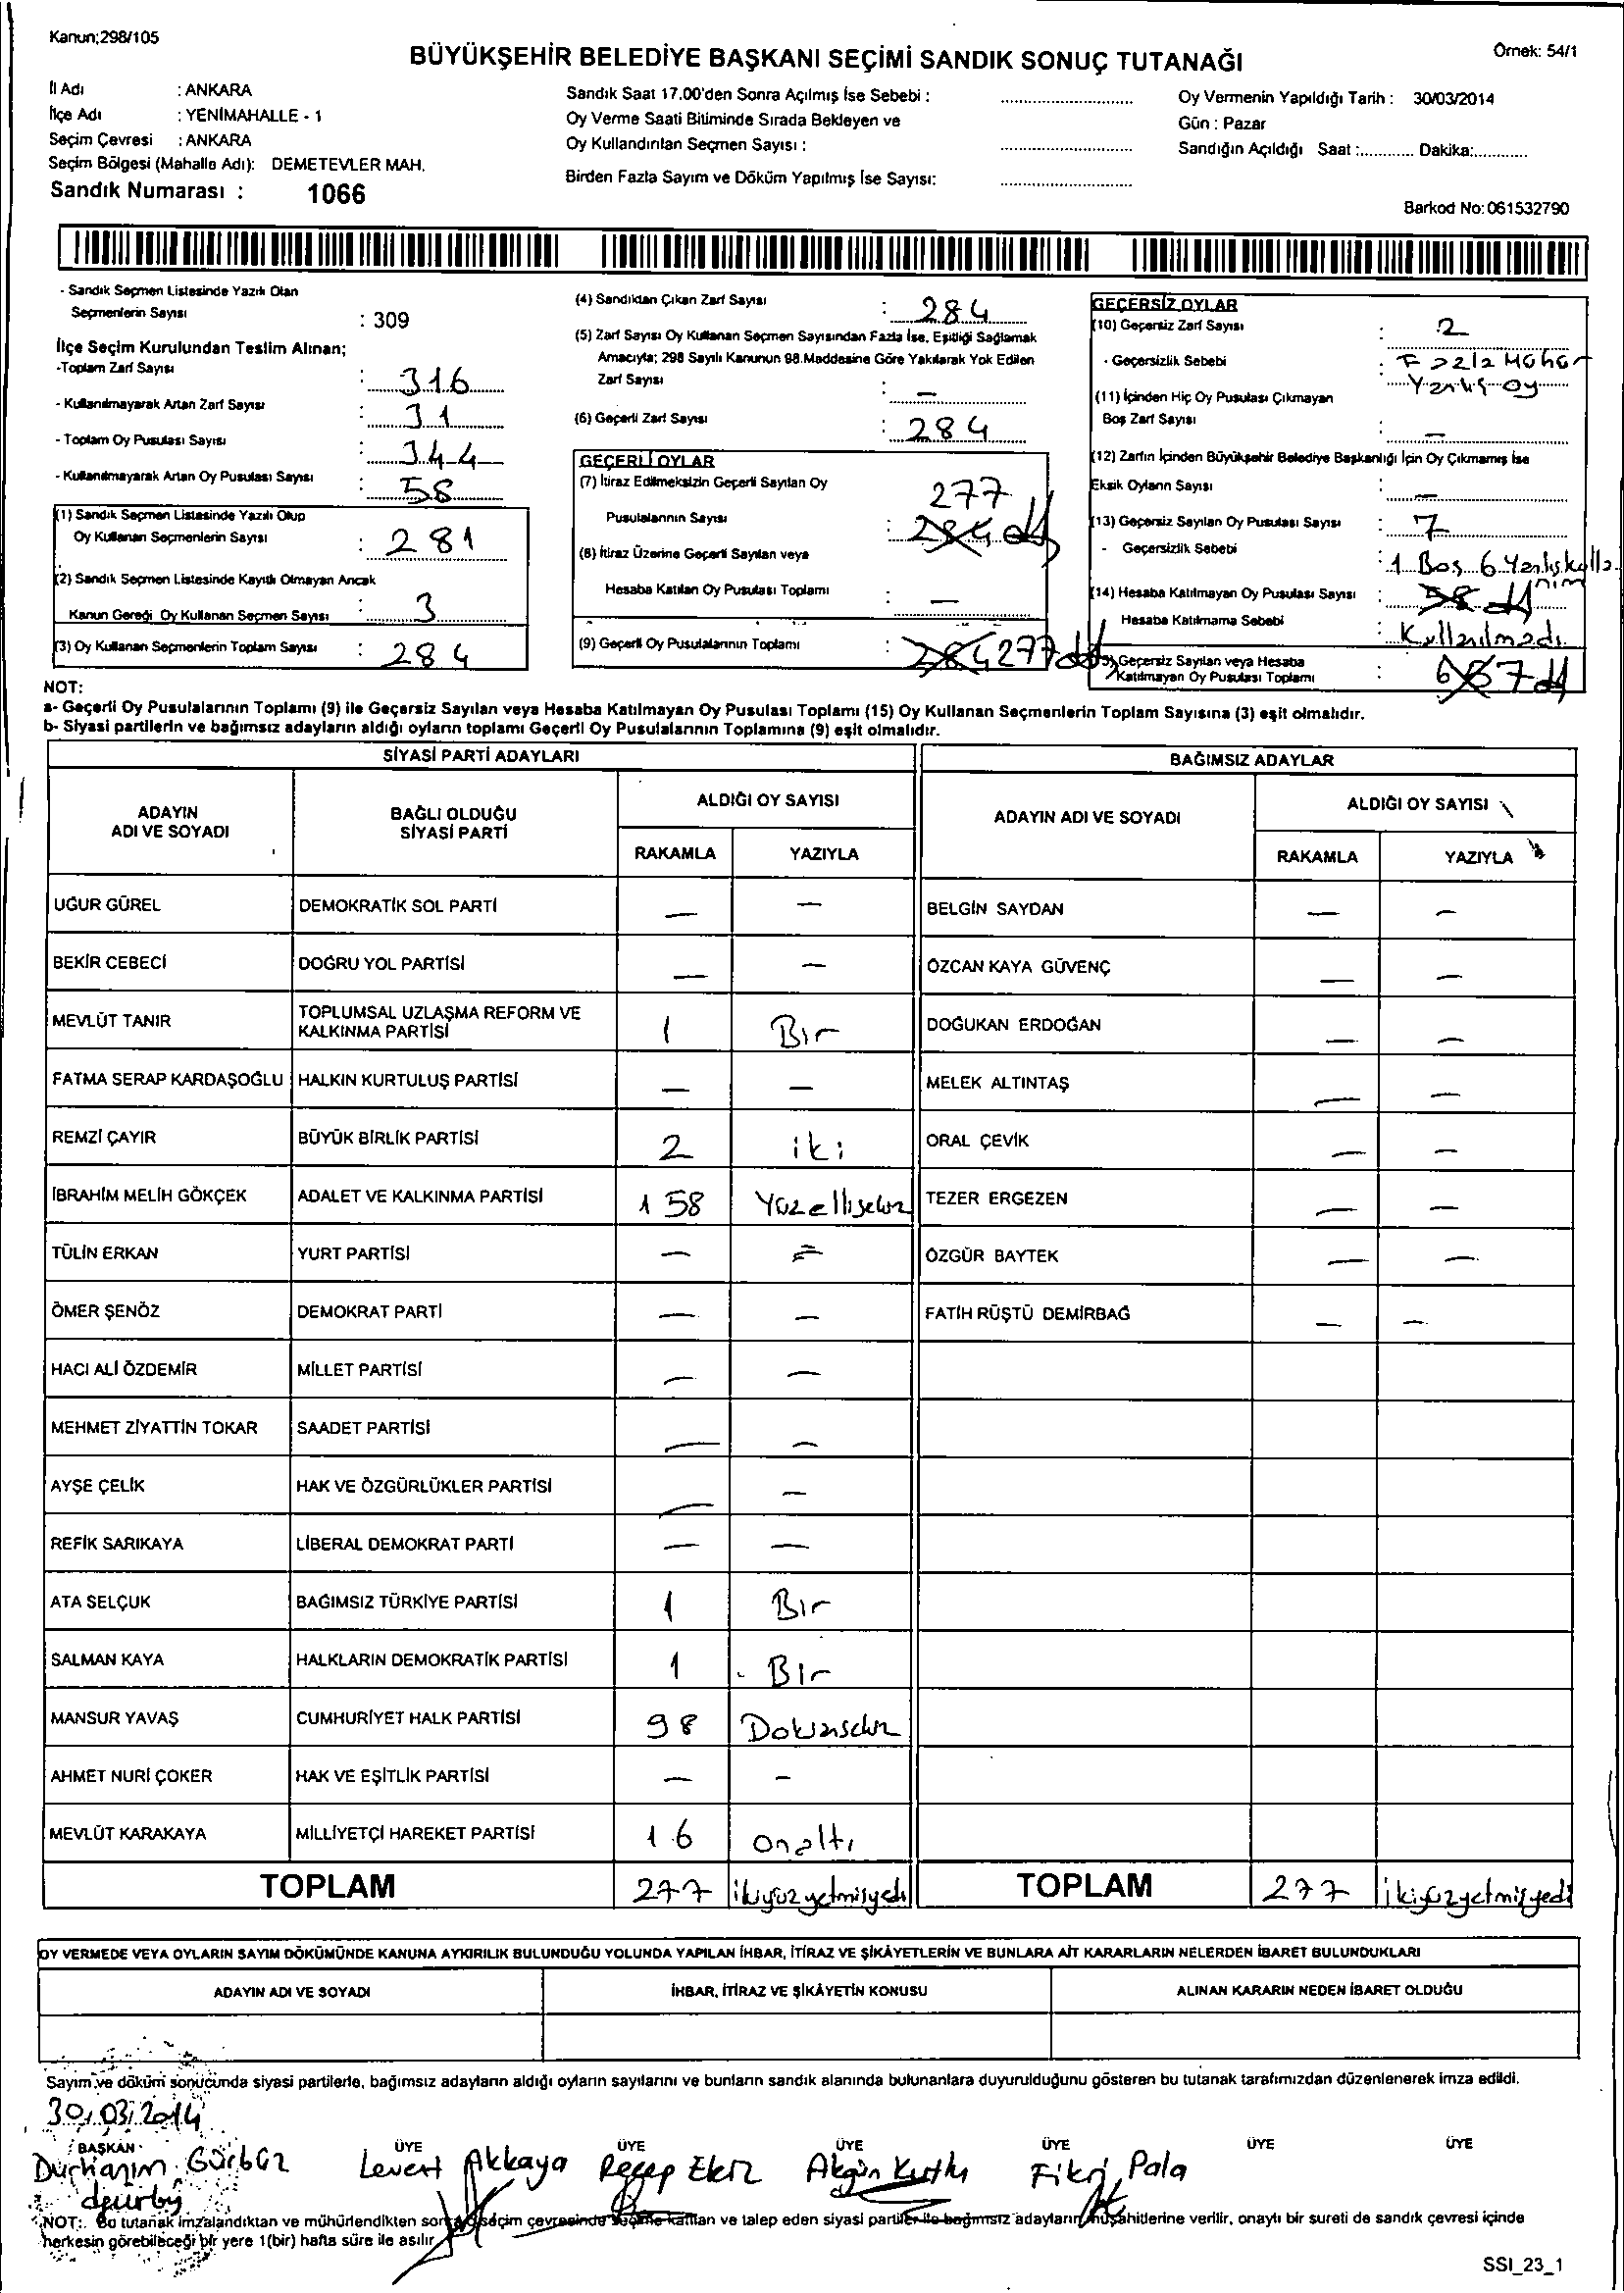 Kanun;298/105
BÜYÜKŞEHİR BELEDİYE BAŞKANI SEÇİMİ SANDIK SONUÇ TUTANAĞI
Örnek: 54/1
İl Adı : ANKARA
İlçe Adı : YENİMAHALLE - 1
Seçim Çevresi : ANKARA
Seçim Bölgesi (Mahalle Adı): DEMETEVLER MAH.
Sandık Numarası : 1066
Sandık Saat 17.00'den Sonra Açılmış İse Sebebi :
Oy Verme Saati Bitiminde Sırada Bekleyen ve
Oy Kullandırılan Seçmen Sayısı :
Birden Fazla Sayım ve Döküm Yapılmış İse Sayısı:
Oy Vermenin Yapıldığı Tarih : 30/03/2014
Gün : Pazar
Sandığın Açıldığı Saat :............ Dakika:............
Barkod No: 061532790
- Sandık Seçmen Listesinde Yazılı Olan
Seçmenlerin Sayısı : 309
İlçe Seçim Kurulundan Teslim Alınan;
-Toplam Zarf Sayısı : 316
- Kullanılmayarak Artan Zarf Sayısı : 31
- Toplam Oy Pusulası Sayısı : 344
- Kullanılmayarak Artan Oy Pusulası Sayısı : 58
(1) Sandık Seçmen Listesinde Yazılı Olup
Oy Kullanan Seçmenlerin Sayısı : 281
(2) Sandık Seçmen Listesinde Kayıtlı Olmayan Ancak
Kanun Gereği Oy Kullanan Seçmen Sayısı : 3
(3) Oy Kullanan Seçmenlerin Toplam Sayısı : 284
(4) Sandıktan Çıkan Zarf Sayısı : 284
(5) Zarf Sayısı Oy Kullanan Seçmen Sayısından Fazla İse, Eşitliği Sağlamak
Amacıyla; 298 Sayılı Kanunun 98.Maddesine Göre Yakılarak Yok Edilen
Zarf Sayısı : —
(6) Geçerli Zarf Sayısı : 284
GEÇERLİ OYLAR
(7) İtiraz Edilmeksizin Geçerli Sayılan Oy 277
Pusulalarının Sayısı : 284
(8) İtiraz Üzerine Geçerli Sayılan veya
Hesaba Katılan Oy Pusulası Toplamı : —
(9) Geçerli Oy Pusulalarının Toplamı : 284 277
GEÇERSİZ OYLAR
(10) Geçersiz Zarf Sayısı : 2
- Geçersizlik Sebebi : Fazla Mühür
Yanlış oy
(11) İçinden Hiç Oy Pusulası Çıkmayan
Boş Zarf Sayısı : —
(12) Zarfın İçinden Büyükşehir Belediye Başkanlığı İçin Oy Çıkmamış İse
Eksik Oyların Sayısı : —
(13) Geçersiz Sayılan Oy Pusulası Sayısı : 7
- Geçersizlik Sebebi : 1 Boş 6 Yanlış kulla
nım
(14) Hesaba Katılmayan Oy Pusulası Sayısı : 58
Hesaba Katılmama Sebebi : Kullanılmadı
(15) Geçersiz Sayılan veya Hesaba
Katılmayan Oy Pusulası Toplamı : 7
NOT:
a- Geçerli Oy Pusulalarının Toplamı (9) ile Geçersiz Sayılan veya Hesaba Katılmayan Oy Pusulası Toplamı (15) Oy Kullanan Seçmenlerin Toplam Sayısına (3) eşit olmalıdır.
b- Siyasi partilerin ve bağımsız adayların aldığı oyların toplamı Geçerli Oy Pusulalarının Toplamına (9) eşit olmalıdır.
SİYASİ PARTİ ADAYLARI BAĞIMSIZ ADAYLAR
ADAYIN ADI VE SOYADI BAĞLI OLDUĞU SİYASİ PARTİ ALDIĞI OY SAYISI ADAYIN ADI VE SOYADI ALDIĞI OY SAYISI
RAKAMLA YAZIYLA RAKAMLA YAZIYLA
UĞUR GÜREL DEMOKRATİK SOL PARTİ — — BELGİN SAYDAN — —
BEKİR CEBECİ DOĞRU YOL PARTİSİ — — ÖZCAN KAYA GÜVENÇ — —
MEVLÜT TANIR TOPLUMSAL UZLAŞMA REFORM VE KALKINMA PARTİSİ 1 Bir DOĞUKAN ERDOĞAN — —
FATMA SERAP KARDAŞOĞLU HALKIN KURTULUŞ PARTİSİ — — MELEK ALTINTAŞ — —
REMZİ ÇAYIR BÜYÜK BİRLİK PARTİSİ 2 iki ORAL ÇEVİK — —
İBRAHİM MELİH GÖKÇEK ADALET VE KALKINMA PARTİSİ 158 Yüzellisekiz TEZER ERGEZEN — —
TÜLİN ERKAN YURT PARTİSİ — — ÖZGÜR BAYTEK — —
ÖMER ŞENÖZ DEMOKRAT PARTİ — — FATİH RÜŞTÜ DEMİRBAĞ — —
HACI ALİ ÖZDEMİR MİLLET PARTİSİ — —
MEHMET ZİYATTİN TOKAR SAADET PARTİSİ — —
AYŞE ÇELİK HAK VE ÖZGÜRLÜKLER PARTİSİ — —
REFİK SARIKAYA LİBERAL DEMOKRAT PARTİ — —
ATA SELÇUK BAĞIMSIZ TÜRKİYE PARTİSİ 1 Bir
SALMAN KAYA HALKLARIN DEMOKRATİK PARTİSİ 1 Bir
MANSUR YAVAŞ CUMHURİYET HALK PARTİSİ 98 Doksansekiz
AHMET NURİ ÇOKER HAK VE EŞİTLİK PARTİSİ — -
MEVLÜT KARAKAYA MİLLİYETÇİ HAREKET PARTİSİ 16 onaltı
TOPLAM 277 ikiyüzyetmişyedi TOPLAM 277 ikiyüzyetmişyedi
OY VERMEDE VEYA OYLARIN SAYIM DÖKÜMÜNDE KANUNA AYKIRILIK BULUNDUĞU YOLUNDA YAPILAN İHBAR, İTİRAZ VE ŞİKÂYETLERİN VE BUNLARA AİT KARARLARIN NELERDEN İBARET BULUNDUKLARI
ADAYIN ADI VE SOYADI İHBAR, İTİRAZ VE ŞİKÂYETİN KONUSU ALINAN KARARIN NEDEN İBARET OLDUĞU
Sayım ve döküm sonucunda siyasi partilerle, bağımsız adayların aldığı oyların sayılarını ve bunların sandık alanında bulunanlara duyurulduğunu gösteren bu tutanak tarafımızdan düzenlenerek imza edildi.
30/03/2014
BAŞKAN ÜYE ÜYE ÜYE ÜYE ÜYE ÜYE
Gürbüz Levent Akkaya Recep Ekiz Akgün Kutlu Fikri Pala
NOT: Bu tutanak imzalandıktan ve mühürlendikten sonra seçim çevresinde seçime katılan ve talep eden siyasi partiler ile bağımsız adayların müşahitlerine verilir, onaylı bir sureti de sandık çevresi içinde
herkesin görebileceği bir yere 1(bir) hafta süre ile asılır
SSI_23_1